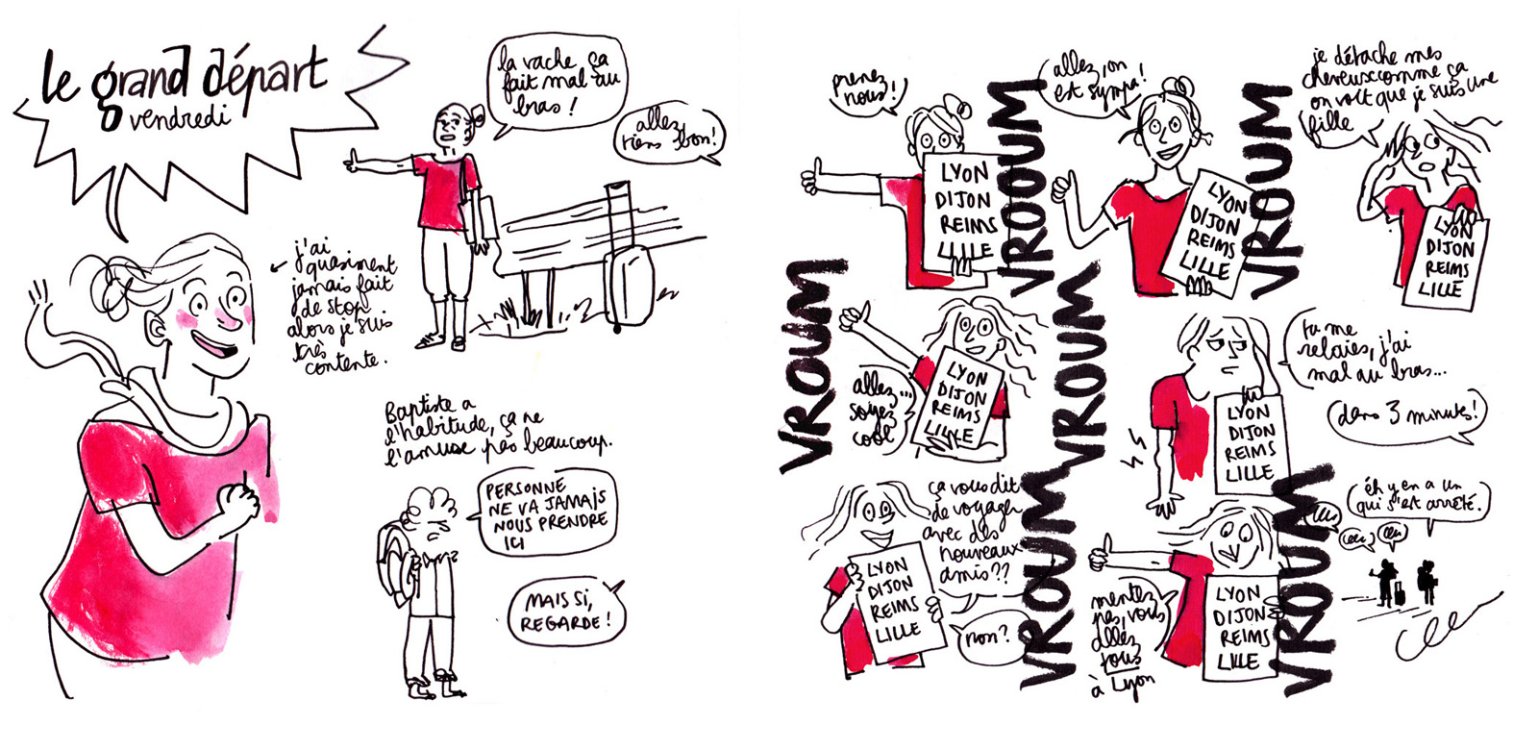 le grand départ
vendredi
la vache, ça
fait mal au
bras !
allez
tiens bon !
j'ai
quasiment
jamais fait
de stop
alors je suis
très
contente.
Baptiste a
l'habitude, ça ne
l'amuse pas beaucoup.
PERSONNE
NE VA JAMAIS
NOUS PRENDRE
ICI
MAIS SI,
REGARDE !
prenez
nous !
LYON
DIJON
REIMS
LILLE
VROOUM
allez, on
est sympa !
LYON
DIJON
REIMS
LILLE
VROUM
je détache mes
cheveux comme ça
on voit que je suis une
fille
LYON
DIJON
REIMS
LILLE
VROUM
allez...
soyez
cool
LYON
DIJON
REIMS
LILLE
VROUM
tu me
relaies, j'ai
mal au bras...
dans 3 minutes !
LYON
DIJON
REIMS
LILLE
ça vous dit
de voyager
avec des
nouveaux
amis ??
non ?
LYON
DIJON
REIMS
LILLE
VROUM
mentez
pas, vous
allez
tous
à Lyon
LYON
DIJON
REIMS
LILLE
VROUM
éh y en a un
qui s'est arrêté.